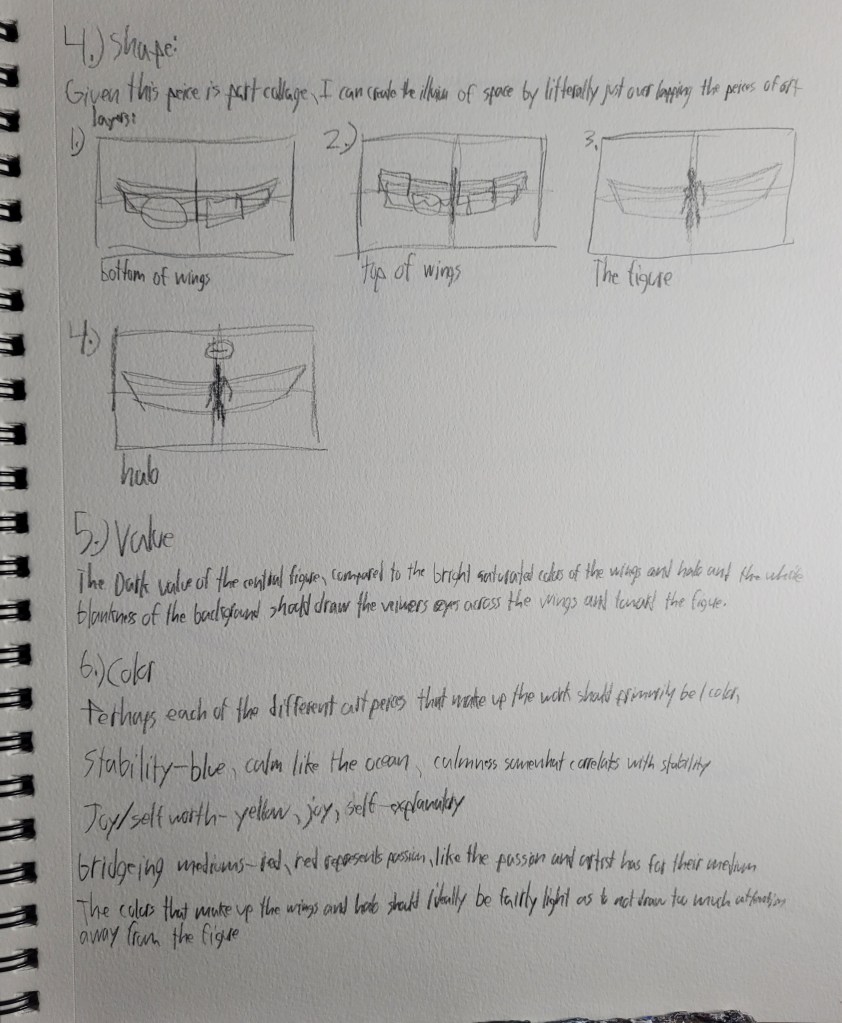 4.) Shape:
Given this peice is part collage, I can create the illusion of space by litterally just over lapping the peices of art
layers:
1.)
2.)
3.
bottom of wings
top of wings
The figure
4.)
halo
5.) Value
The Dark value of the central figure, compared to the bright saturated colors of the wings and halo and the white
blankness of the background should draw the veiwers eyes across the wings and toward the figure.
6.) Color
Perhaps each of the different art peices that make up the work should primarily be 1 color,
Stability-blue, calm like the ocean, calmness somewhat correlates with stability
Joy/self worth-yellow, joy, self-explanatory
bridgeing mediums-red, red represents passion, like the passion and artist has for their medium
The colors that make up the wings and halo should Ideally be fairly light as to not draw too much attention
away from the figure